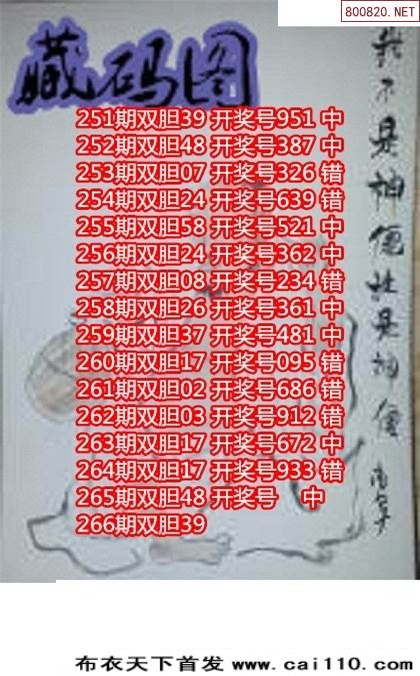 800820.NET
藏码图
251期双胆39 开奖号951 中
252期双胆48 开奖号387 中
253期双胆07 开奖号326 错
254期双胆24 开奖号639 错
255期双胆58 开奖号521 中
256期双胆24 开奖号362 中
257期双胆08 开奖号234 错
258期双胆26 开奖号361 中
259期双胆37 开奖号481 中
260期双胆17 开奖号095 错
261期双胆02 开奖号686 错
262期双胆03 开奖号912 错
263期双胆17 开奖号672 中
264期双胆17 开奖号933 错
265期双胆48 开奖号 中
266期双胆39
我不是神便
是神僊
布衣天下首发 www.cai110.com